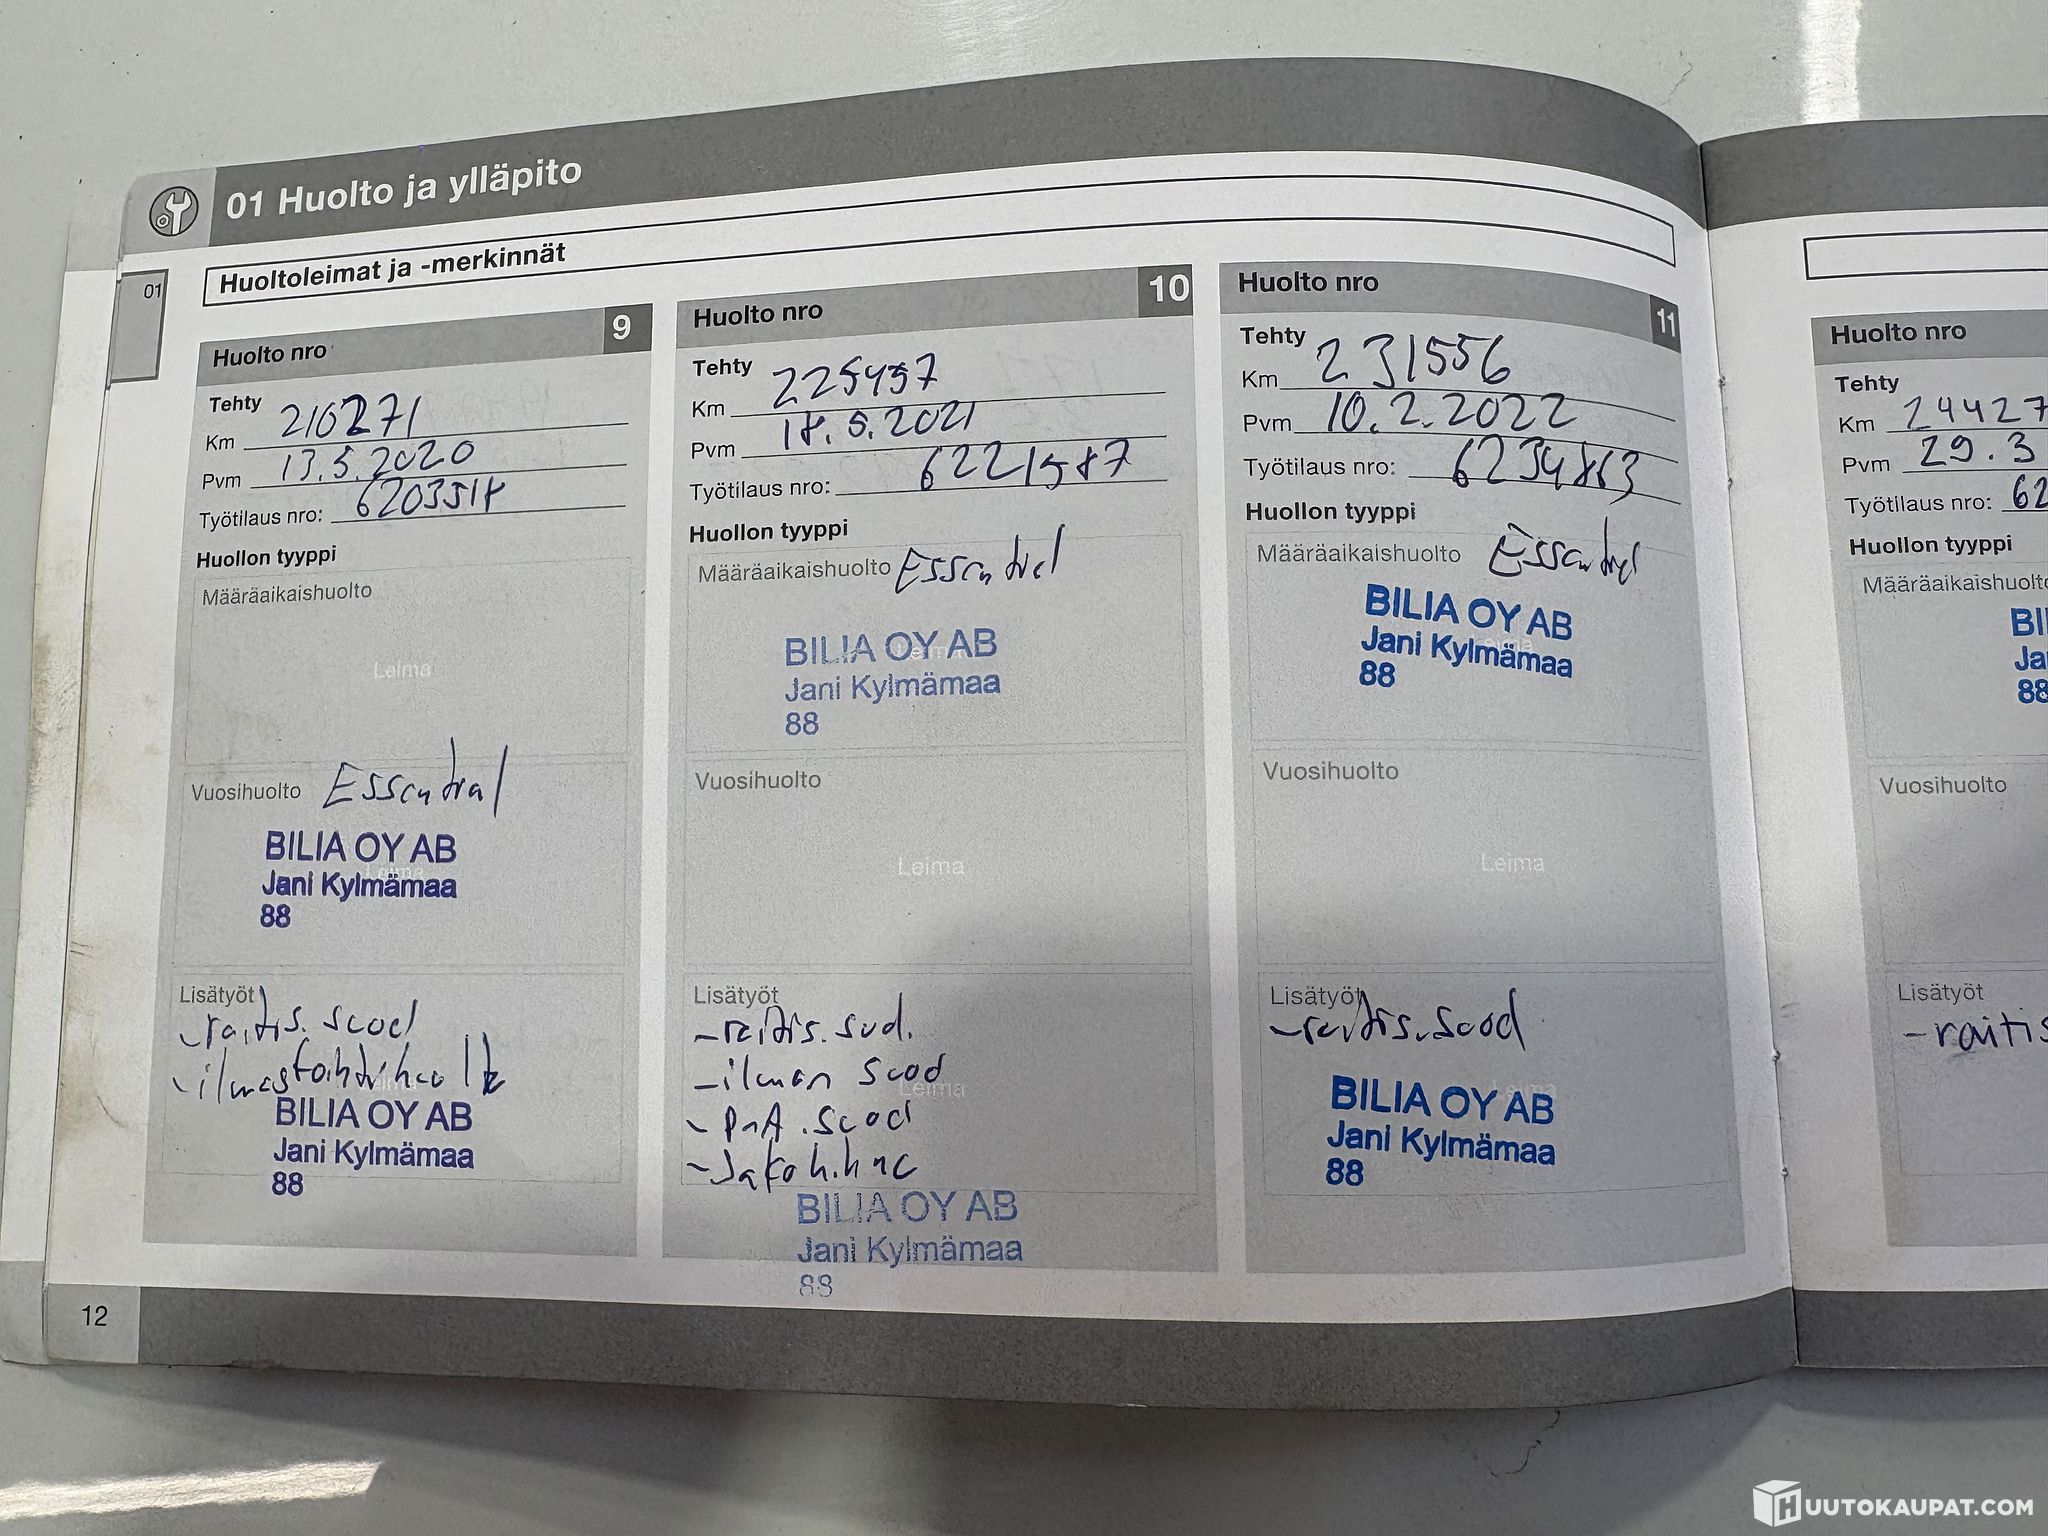 01 Huolto ja ylläpito
Huoltoleimat ja -merkinnät
01
Huolto nro 9
Tehty
Km 210271
Pvm 13.5.2020
Työtilaus nro: 6203518
Huollon tyyppi
Määräaikaishuolto
Leima
Vuosihuolto Essential
BILIA OY AB
Jani Kylmämaa
88
Lisätyöt
- raitis. suod
- ilmastointihuolto
BILIA OY AB
Jani Kylmämaa
88
Huolto nro 10
Tehty
Km 225457
Pvm 18.5.2021
Työtilaus nro: 6221587
Huollon tyyppi
Määräaikaishuolto Essential
BILIA OY AB
Jani Kylmämaa
88
Vuosihuolto
Leima
Lisätyöt
- raitis. suod.
- ilman suod
Leima
- PnA. suod
- Jakoh.hnc
BILIA OY AB
Jani Kylmämaa
88
Huolto nro 11
Tehty
Km 231556
Pvm 10.2.2022
Työtilaus nro: 6234863
Huollon tyyppi
Määräaikaishuolto Essential
BILIA OY AB
Jani Kylmämaa
88
Vuosihuolto
Leima
Lisätyöt
- raitis. suod
BILIA OY AB
Jani Kylmämaa
88
Huolto nro
Tehty
Km 24427
Pvm 29.3
Työtilaus nro: 62
Huollon tyyppi
Määräaikaishuolto
BI
Ja
88
Vuosihuolto
Lisätyöt
- raitis
12
HUUTOKAUPAT.COM